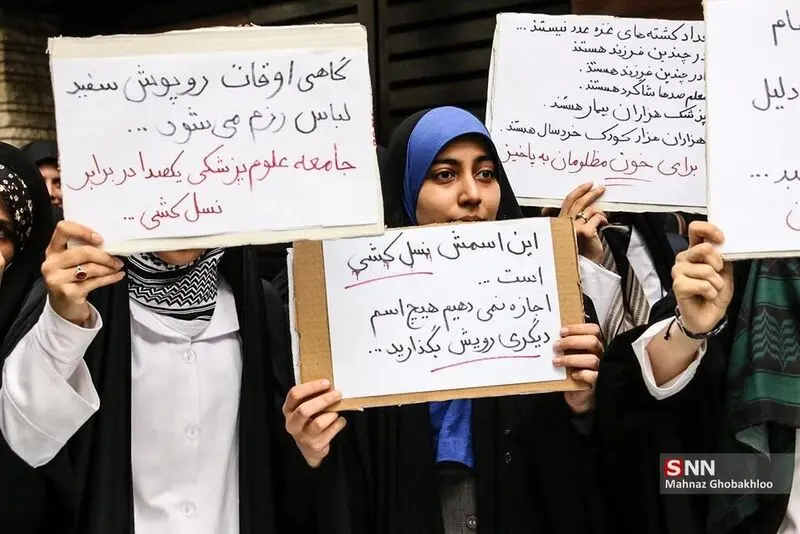 گاهی اوقات روپوش سفید
لباس رزم می‌شود ...
جامعه علوم پزشکی یکصدا در برابر
نسل کشی ...
این اسمش نسل کشی
است ...
اجازه نمی دهیم هیچ اسم
دیگری رویش بگذارید ...
کشته‌های غزه عدد نیستند ...
در چندین فرزند هستند
در چندین فرزند هستند.
معلم صدها شاگرد هستند.
پزشک هزاران بیمار هستند.
هزاران هزار کودک خردسال هستند.
برای خون مظلومان به پاخیز
دلیل
SNN
Mahnaz Ghobakhloo